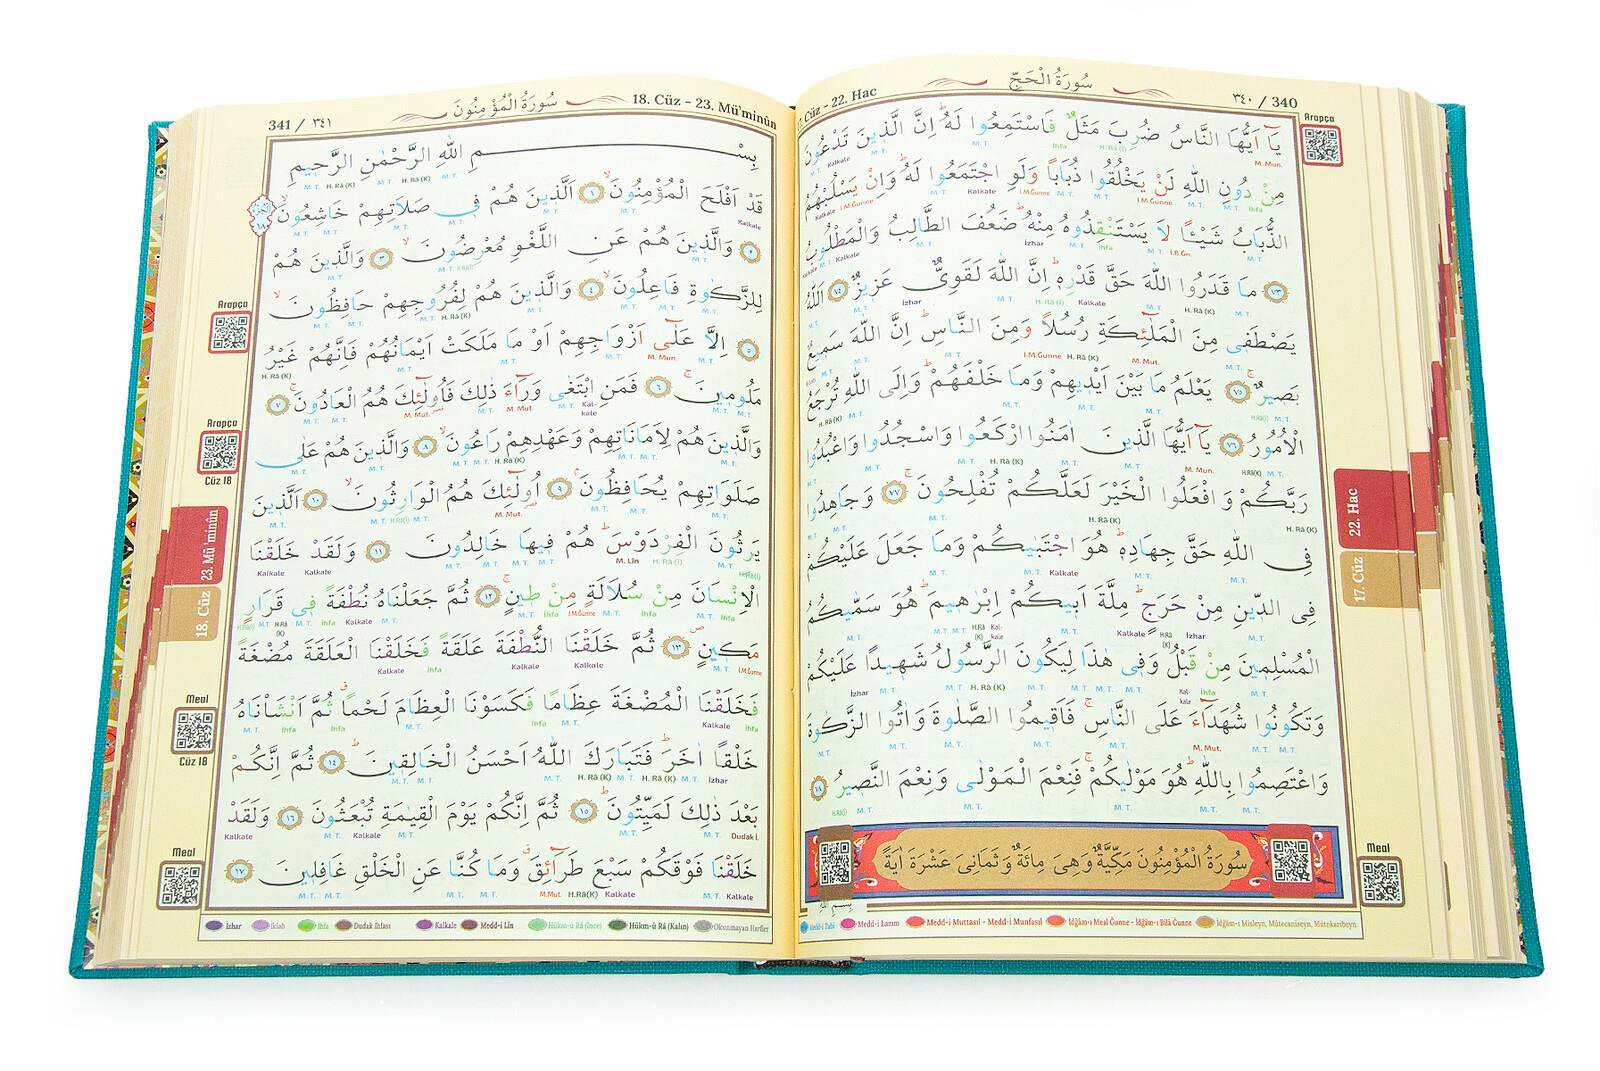 سُورَةُ الْحَجِّ
٣٤٠ / 340
17. Cüz - 22. Hac
يَٓا اَيُّهَا النَّاسُ ضُرِبَ مَثَلٌ فَاسْتَمِعُوا لَهُ اِنَّ الَّذ۪ينَ تَدْعُونَ
مِنْ دُونِ اللّٰهِ لَنْ يَخْلُقُوا ذُبَاباً وَلَوِ اجْتَمَعُوا لَهُ وَاِنْ يَسْلُبْهُمُ
الذُّبَابُ شَيْـٔاً لَا يَسْتَنْقِذُوهُ مِنْهُ ضَعُفَ الطَّالِبُ وَالْمَطْلُوبُ
﴿٧٣﴾ مَا قَدَرُوا اللّٰهَ حَقَّ قَدْرِه۪ اِنَّ اللّٰهَ لَقَوِيٌّ عَز۪يزٌ ﴿٧٤﴾ اَللّٰهُ
يَصْطَف۪ي مِنَ الْمَلٰٓئِكَةِ رُسُلاً وَمِنَ النَّاسِ اِنَّ اللّٰهَ سَم۪يعٌ
بَص۪يرٌ ﴿٧٥﴾ يَعْلَمُ مَا بَيْنَ اَيْد۪يهِمْ وَمَا خَلْفَهُمْ وَاِلَى اللّٰهِ تُرْجَعُ
الْاُمُورُ ﴿٧٦﴾ يَٓا اَيُّهَا الَّذ۪ينَ اٰمَنُوا ارْكَعُوا وَاسْجُدُوا وَاعْبُدُوا
رَبَّكُمْ وَافْعَلُوا الْخَيْرَ لَعَلَّكُمْ تُفْلِحُونَ ﴿٧٧﴾ وَجَاهِدُوا
فِي اللّٰهِ حَقَّ جِهَادِه۪ هُوَ اجْتَبٰيكُمْ وَمَا جَعَلَ عَلَيْكُمْ
فِي الدّ۪ينِ مِنْ حَرَجٍ مِلَّةَ اَب۪يكُمْ اِبْرٰه۪يمَ هُوَ سَمّٰيكُمُ
الْمُسْلِم۪ينَ مِنْ قَبْلُ وَف۪ي هٰذَا لِيَكُونَ الرَّسُولُ شَه۪يداً عَلَيْكُمْ
وَتَكُونُوا شُهَدَٓاءَ عَلَى النَّاسِ فَاَق۪يمُوا الصَّلٰوةَ وَاٰتُوا الزَّكٰوةَ
وَاعْتَصِمُوا بِاللّٰهِ هُوَ مَوْلٰيكُمْ فَنِعْمَ الْمَوْلٰى وَنِعْمَ النَّص۪يرُ ﴿٧٨﴾
سُورَةُ الْمُؤْمِنُونَ مَكِّيَّةٌ وَهِيَ مِائَةٌ وَثَمَانِيَ عَشْرَةَ اٰيَةً
Medd-i Tabî Medd-i Lazım Medd-i Muttasıl - Medd-i Munfasıl İdğâm-ı Meal Ğunne - İdğâm-ı Bilâ Ğunne İdğâm-ı Misleyn, Mütecaniseyn, Mütekaribeyn
Arapça
22. Hac
17. Cüz
Meal
341 / ٣٤١
سُورَةُ الْمُؤْمِنُونَ
18. Cüz - 23. Mü'minûn
بِسْمِ اللّٰهِ الرَّحْمٰنِ الرَّح۪يمِ
قَدْ اَفْلَحَ الْمُؤْمِنُونَ ﴿١﴾ اَلَّذ۪ينَ هُمْ ف۪ي صَلَاتِهِمْ خَاشِعُونَ
﴿٢﴾ وَالَّذ۪ينَ هُمْ عَنِ اللَّغْوِ مُعْرِضُونَ ﴿٣﴾ وَالَّذ۪ينَ هُمْ
لِلزَّكٰوةِ فَاعِلُونَ ﴿٤﴾ وَالَّذ۪ينَ هُمْ لِفُرُوجِهِمْ حَافِظُونَ
﴿٥﴾ اِلَّا عَلٰٓى اَزْوَاجِهِمْ اَوْ مَا مَلَكَتْ اَيْمَانُهُمْ فَاِنَّهُمْ غَيْرُ
مَلُوم۪ينَ ﴿٦﴾ فَمَنِ ابْتَغٰى وَرَٓاءَ ذٰلِكَ فَاُو۬لٰٓئِكَ هُمُ الْعَادُونَ ﴿٧﴾
وَالَّذ۪ينَ هُمْ لِاَمَانَاتِهِمْ وَعَهْدِهِمْ رَاعُونَ ﴿٨﴾ وَالَّذ۪ينَ هُمْ عَلٰى
صَلَوَاتِهِمْ يُحَافِظُونَ ﴿٩﴾ اُو۬لٰٓئِكَ هُمُ الْوَارِثُونَ ﴿١٠﴾ اَلَّذ۪ينَ
يَرِثُونَ الْفِرْدَوْسَ هُمْ ف۪يهَا خَالِدُونَ ﴿١١﴾ وَلَقَدْ خَلَقْنَا
الْاِنْسَانَ مِنْ سُلَالَةٍ مِنْ ط۪ينٍ ﴿١٢﴾ ثُمَّ جَعَلْنَاهُ نُطْفَةً ف۪ي قَرَارٍ
مَك۪ينٍ ﴿١٣﴾ ثُمَّ خَلَقْنَا النُّطْفَةَ عَلَقَةً فَخَلَقْنَا الْعَلَقَةَ مُضْغَةً
فَخَلَقْنَا الْمُضْغَةَ عِظَاماً فَكَسَوْنَا الْعِظَامَ لَحْماً ثُمَّ اَنْشَأْنَاهُ
خَلْقاً اٰخَرَ فَتَبَارَكَ اللّٰهُ اَحْسَنُ الْخَالِق۪ينَ ﴿١٤﴾ ثُمَّ اِنَّكُمْ
بَعْدَ ذٰلِكَ لَمَيِّتُونَ ﴿١٥﴾ ثُمَّ اِنَّكُمْ يَوْمَ الْقِيٰمَةِ تُبْعَثُونَ ﴿١٦﴾ وَلَقَدْ
خَلَقْنَا فَوْقَكُمْ سَبْعَ طَرَٓائِقَ وَمَا كُنَّا عَنِ الْخَلْقِ غَافِل۪ينَ ﴿١٧﴾
İzhar İklab İhfa Dudak İhfası Kalkale Medd-i Lîn Hükm-ü Râ (İnce) Hükm-ü Râ (Kalın) Okunmayan Harfler
Arapça
Arapça
Cüz 18
23. Mü'minûn
18. Cüz
Meal
Cüz 18
Meal